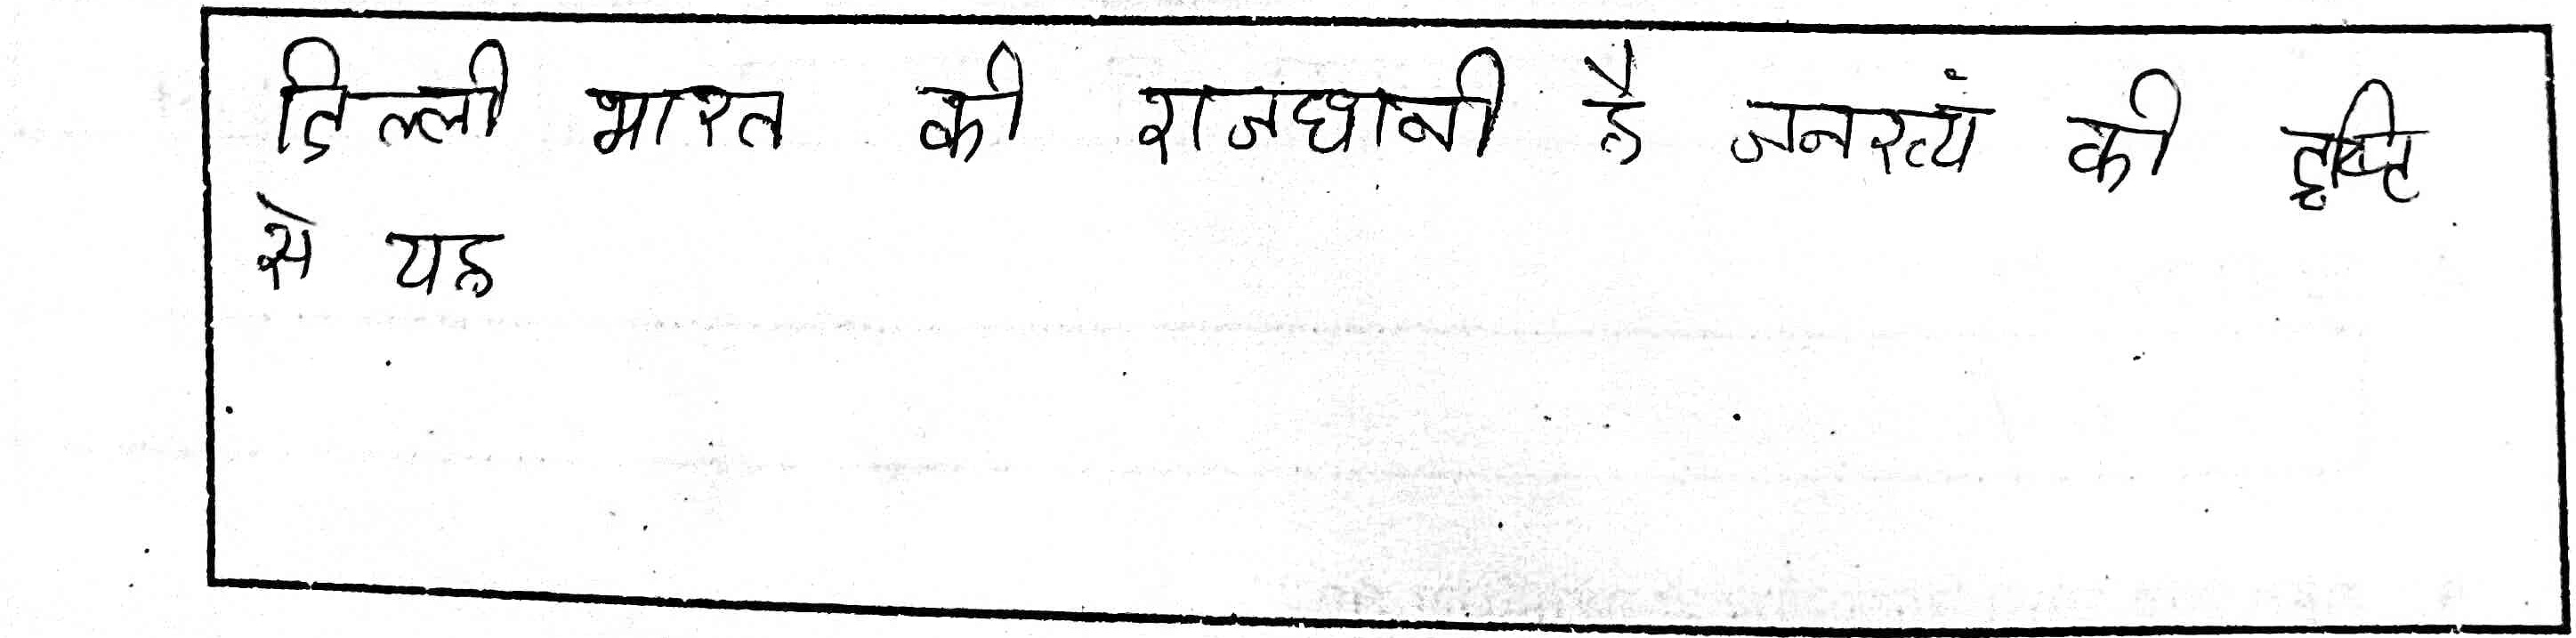 दिल्ली भारत की राजधानी है जनस्त्यं की दृष्टि
से यह